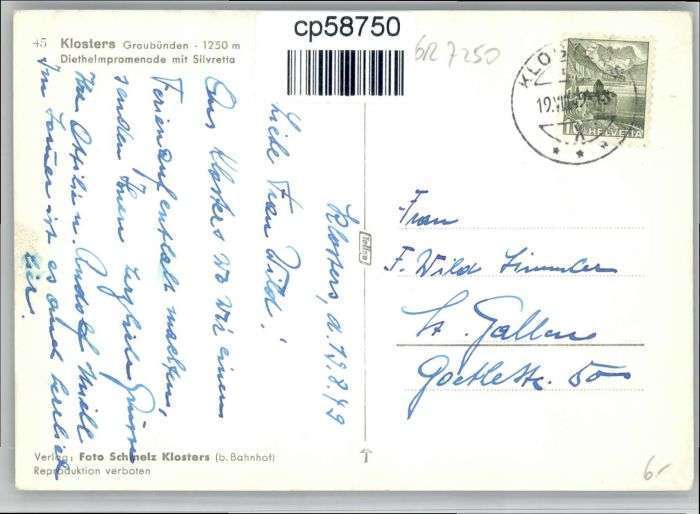 cp58750
GR 7250
45 Klosters Graubünden - 1250 m
Diethelmpromenade mit Silvretta
KLO
19.VIII.49
10 HELVETIA
Klosters, d. 19.8.49
Liebe Frau Wild!
Aus Klosters wo wir einen
Ferienaufenthalt machen,
senden Ihnen herzliche Grüsse
Ihre Ottilie u. Rudolf
Im Tanner ist es auch herrlich
hier.
Frau
F. Wild Simmler
St. Gallen
Goethestr. 50
Verlag: Foto Schmelz Klosters (b. Bahnhof)
Reproduktion verboten
6.-